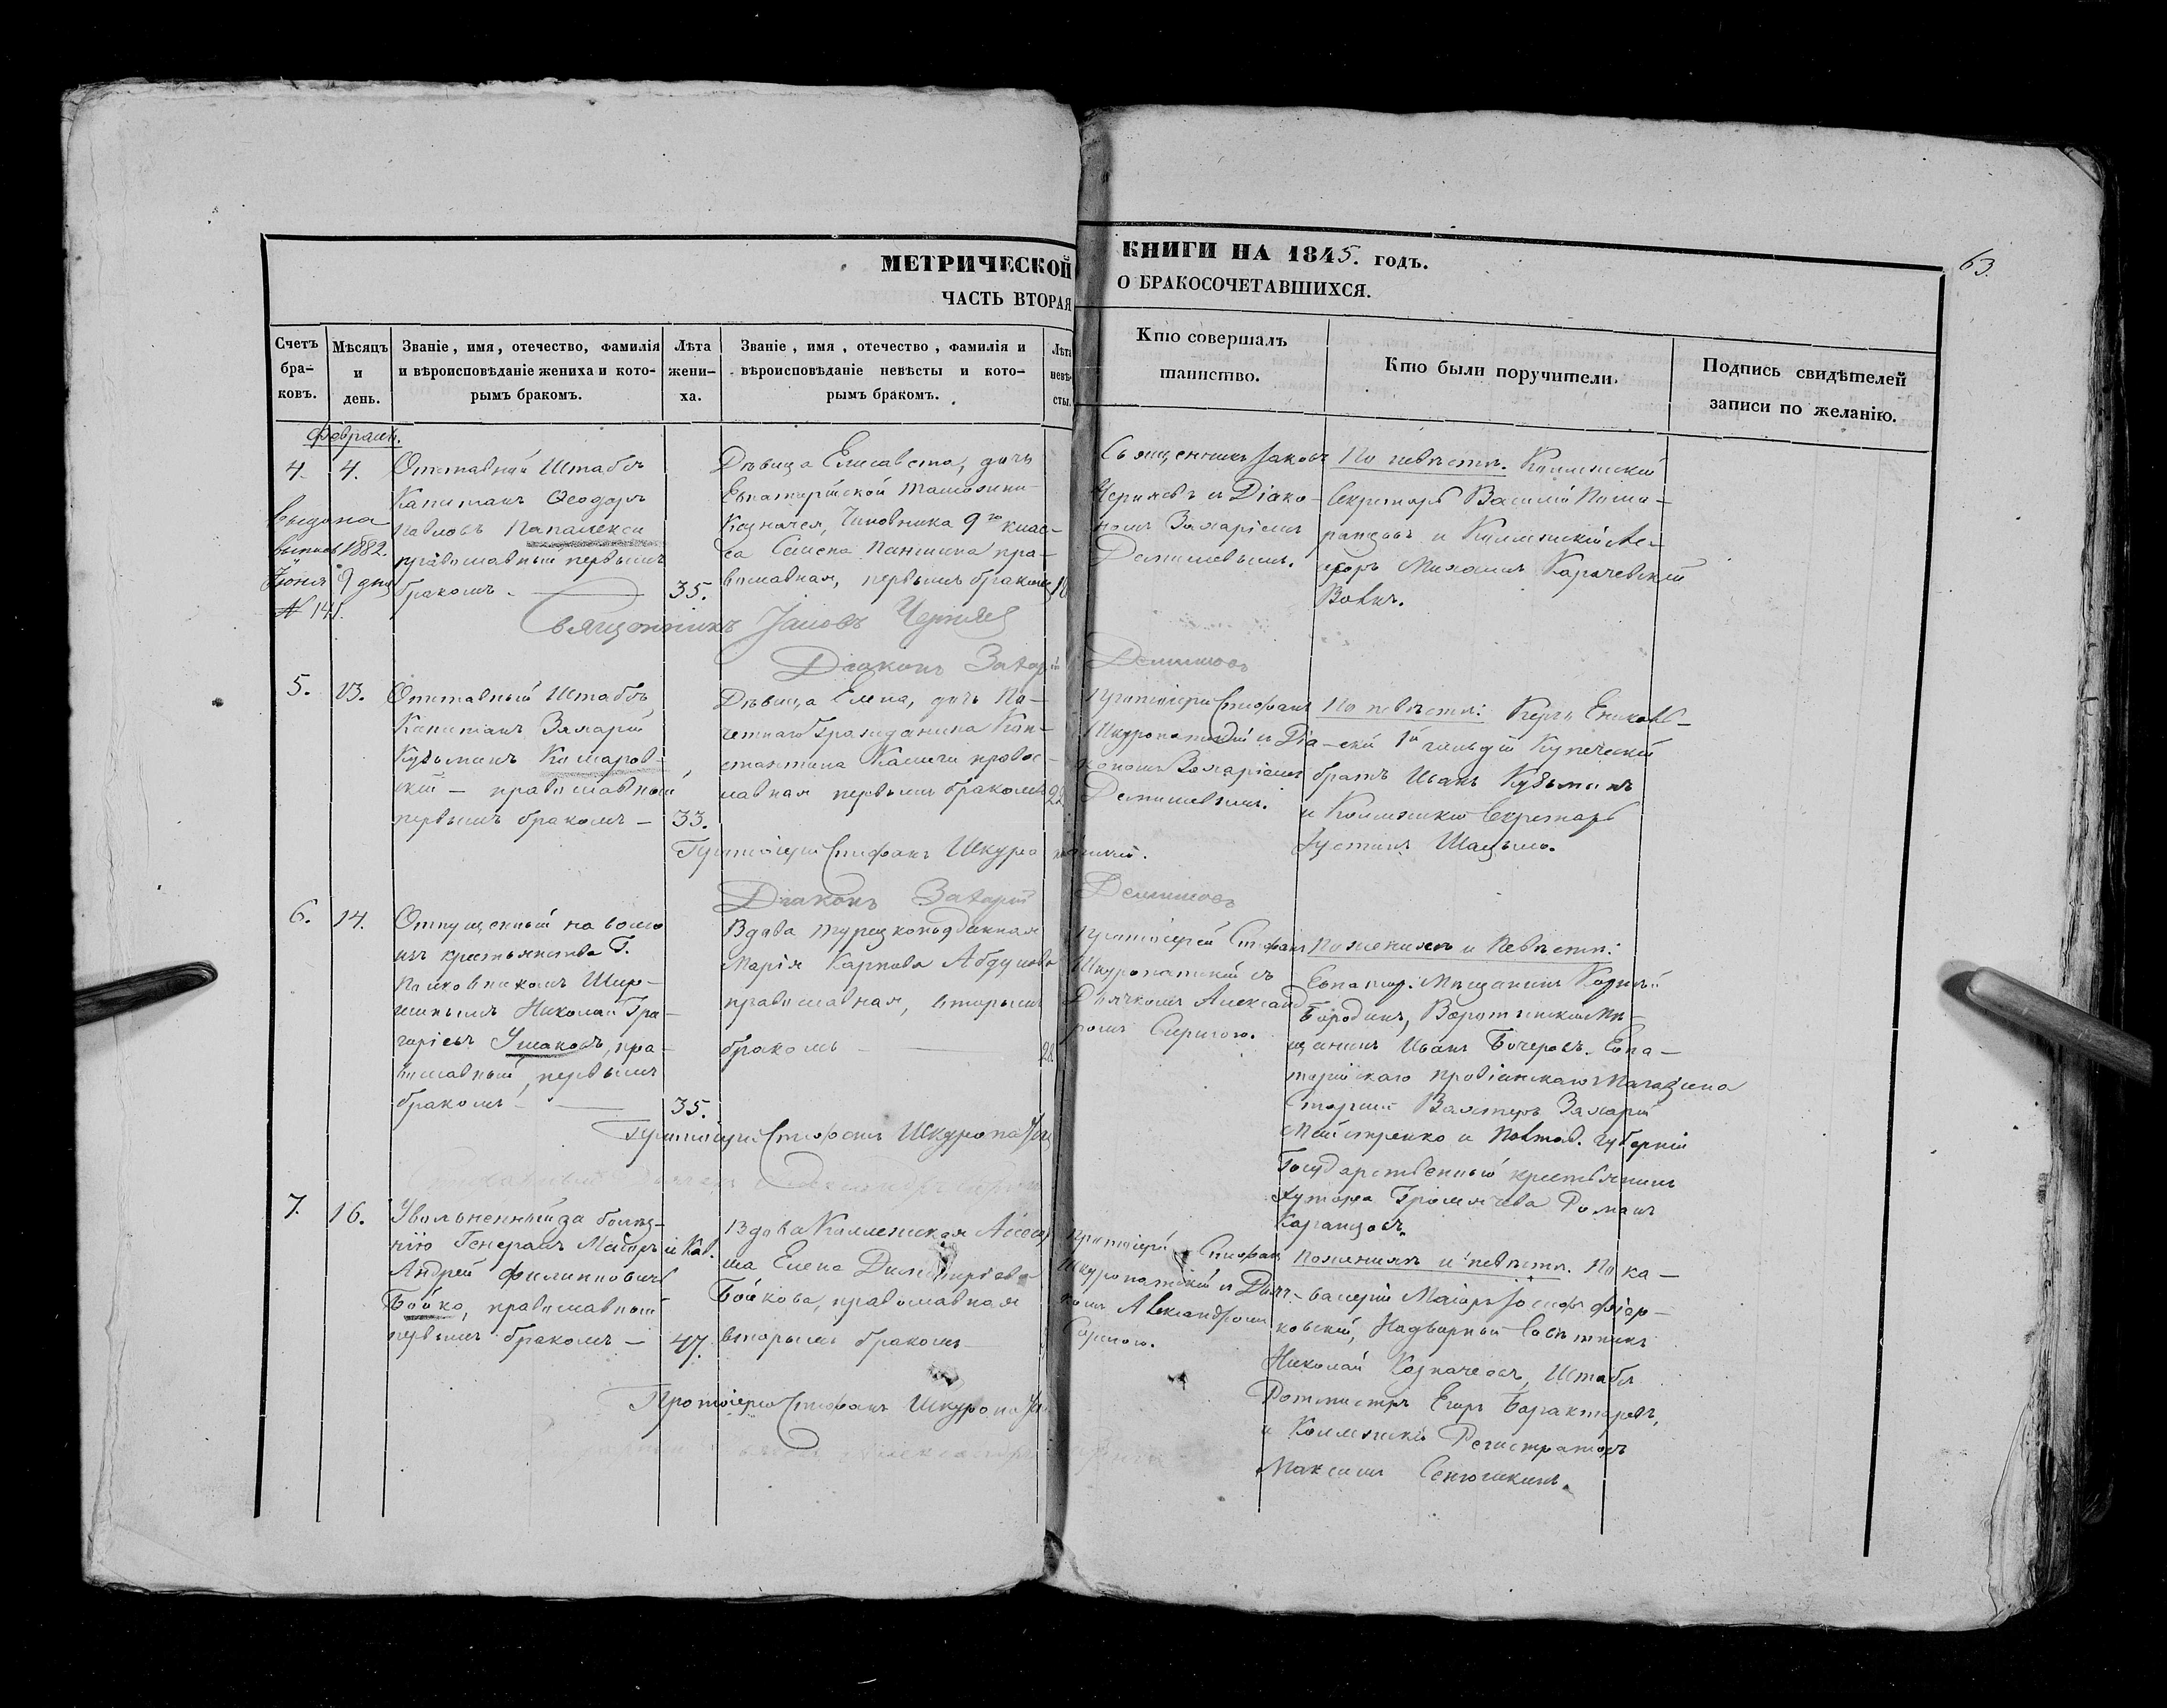 МЕТРИЧЕСКОЙ КНИГИ НА 1845. годъ.
63.
ЧАСТЬ ВТОРАЯ О БРАКОСОЧЕТАВШИХСЯ.
Счетъ бра-
ковъ.
Мѣсяцъ
и
день.
Званіе, имя, отечество, фамилія
и вѣроисповѣданіе жениха и кото-
рымъ бракомъ.
Лѣта
жени-
ха.
Званіе, имя, отечество, фамилія и
вѣроисповѣданіе невѣсты и кото-
рымъ бракомъ.
Лѣта
невѣ-
сты.
Кто совершалъ
таинство.
Кто были поручители.
Подпись свидѣтелей
записи по желанію.
Февраль.
4.
4.
Отставный Штабсъ
Капитанъ Ѳеодоръ
Павловъ Папалекси
православный первымъ
бракомъ.
35.
Дѣвица Елисавета, дочь
Евпаторійской Таможни
Казначея, Чиновника 9го клас-
са Паншина пра-
вославная, первымъ бракомъ
18
Священникъ Іаковъ
Черняевъ и Діако-
номъ Захаріемъ
По невѣстѣ. Коллежскій
Секретарь Василій
и Коллежскій
Михаилъ Карачевскій
Выдана
выпись 1882.
Іюня 9 дня
№ 141.
Священникъ Іаковъ Черняев
Діаконъ Захарій
5.
13.
Отставный Штабсъ
Капитанъ Захарій
Кузьминъ Комаров-
скій — православный
первымъ бракомъ —
33.
Дѣвица Елена, дочь По-
четнаго Гражданина Кон-
стантина правос-
лавная первымъ бракомъ
22
Протоіерей Стефанъ
Шкуропатскій и Діа-
кономъ Захаріемъ
По невѣстѣ: Керчь Еникаль-
ской 1й гильдіи Купеческій
братъ Иванъ Кузьминъ
и Коллежскій Секретарь
Протоіерей Стефанъ Шкуропатскій.
Діаконъ Захарій
6.
14.
Отпущенный на волю
изъ крестьянства Г.
Полковникомъ Шир-
Николай Гри-
горіевъ Ушаковъ, пра-
вославный, первымъ
бракомъ —
35.
Вдова турецкоподданная
Марія Карпова
православная, вторымъ
бракомъ —
28
Протоіерей Стефанъ
Шкуропатскій съ
Дьячкомъ Александ-
ромъ
По женихѣ и невѣстѣ:
Евпатор. Мѣщанинъ Корнѣй
Бородинъ, Мѣ-
щанинъ Иванъ Бочеровъ. Евпа-
торійскаго провіанскаго Магазина
Вахтеръ Захарій
и Полтав. губерніи
Государственный крестьянинъ
хутора Романъ
Протоіерей Стефанъ
7.
16.
Увольненный за болѣз-
нію Генералъ Маіоръ и Кав.
Андрей Филипповичъ
Бойко, православный
первымъ бракомъ —
47.
Вдова Коллежская Ассесор
ша Елена Димитріева
Бойкова, православная
вторымъ бракомъ —
Протоіерей Стефанъ
Шкуропатскій и Дьяч-
комъ Александромъ
По женихѣ и невѣстѣ. По ка-
валеріи Маіоръ Іосифъ
Надворный Совѣтникъ
Николай Казначеевъ, Штабсъ
Ротмистръ Егоръ Барактаревъ,
и Коллежскій Регистраторъ
Максимъ Сенюшкинъ.
Протоіерей Стефанъ